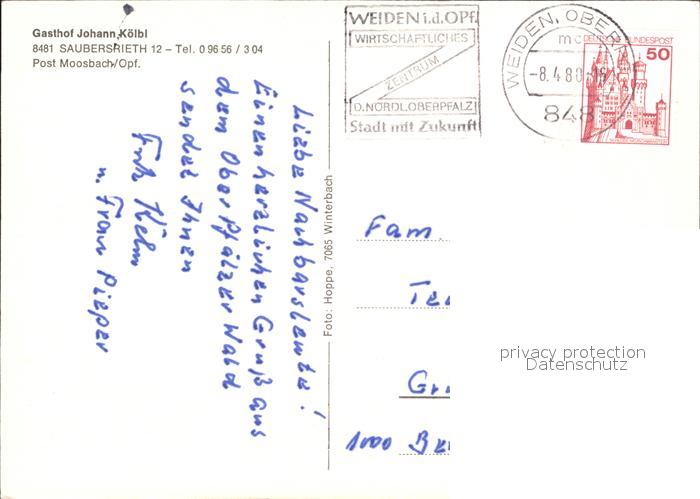 Gasthof Johann Kölbl
8481 SAUBERSRIETH 12 – Tel. 0 96 56 / 3 04
Post Moosbach/Opf.
WEIDEN i.d.OPf.
WIRTSCHAFTLICHES
ZENTRUM
D.NÖRDL.OBERPFALZ
Stadt mit Zukunft
WEIDEN, OBERPF
mc
-8.4.80-16
848
DEUTSCHE BUNDESPOST
50
Liebe Nachbarsleute!
Einen herzlichen Gruß aus
dem Oberpfälzer Wald
sendet Ihnen
Fritz Kelm
u. Frau Pieper
Foto: Hoppe, 7065 Winterbach
Fam.
Te
Gr
1000 Be
privacy protection
Datenschutz